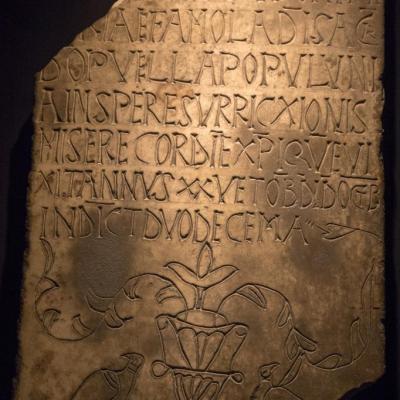 FAMOLADISACR
DOPVELLAPOPVLVNI
AINSPERESVRRICXIONIS
MISERECORDIEXPIQVEVI
XITANNVSXXVETOB
INDICTDVODECEMA